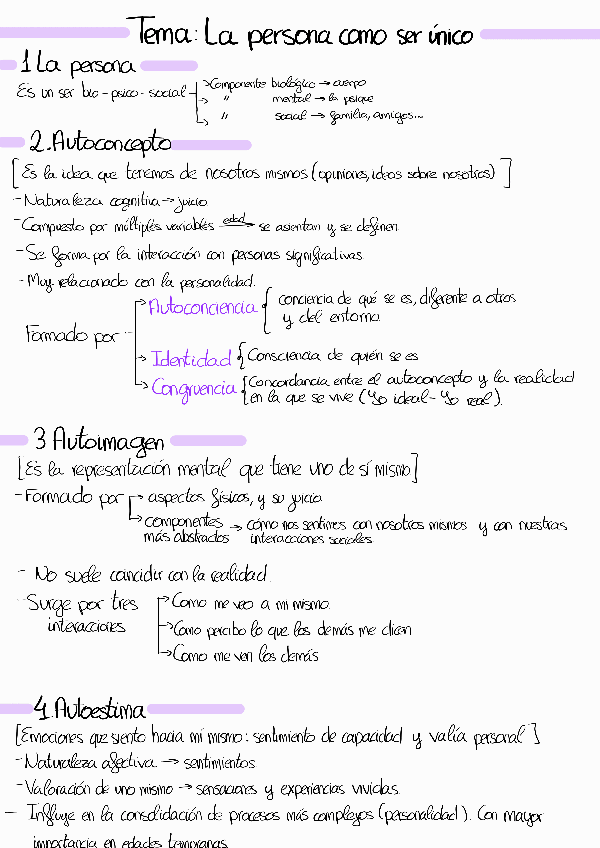 Tema: La persona como ser único
1 La persona
Es un ser bio-psico-social → Componente biológico → cuerpo
→ " mental → la psique
→ " social → familia, amigos...
2. Autoconcepto
[Es la idea que tenemos de nosotros mismos (opiniones, ideas sobre nosotros)]
- Naturaleza cognitiva → juicio
- Compuesto por múltiples variables edad → se asientan y se definen
- Se forma por la interacción con personas significativas
- Muy relacionado con la personalidad.
Formado por → Autoconciencia { conciencia de qué se es, diferente a otros
y del entorno
→ Identidad { Consciencia de quién se es
→ Congruencia { Concordancia entre el autoconcepto y la realidad
en la que se vive (Yo ideal - Yo real).
3 Autoimagen
[Es la representación mental que tiene uno de sí mismo]
- Formado por → aspectos físicos, y su juicio
→ componentes → cómo nos sentimos con nosotros mismos y con nuestras
más abstrados interacciones sociales
- No suele coincidir con la realidad
- Surge por tres → Como me veo a mi mismo.
interacciones → Como percibo lo que los demás me dicen
→ Como me ven los demás
4. Autoestima
[Emociones que siento hacia mí mismo: sentimiento de capacidad y valía personal]
- Naturaleza afectiva → sentimientos
- Valoración de uno mismo → sensaciones y experiencias vividas.
- Influye en la consolidación de procesos más complejos (personalidad). Con mayor
importancia en edades tempranas